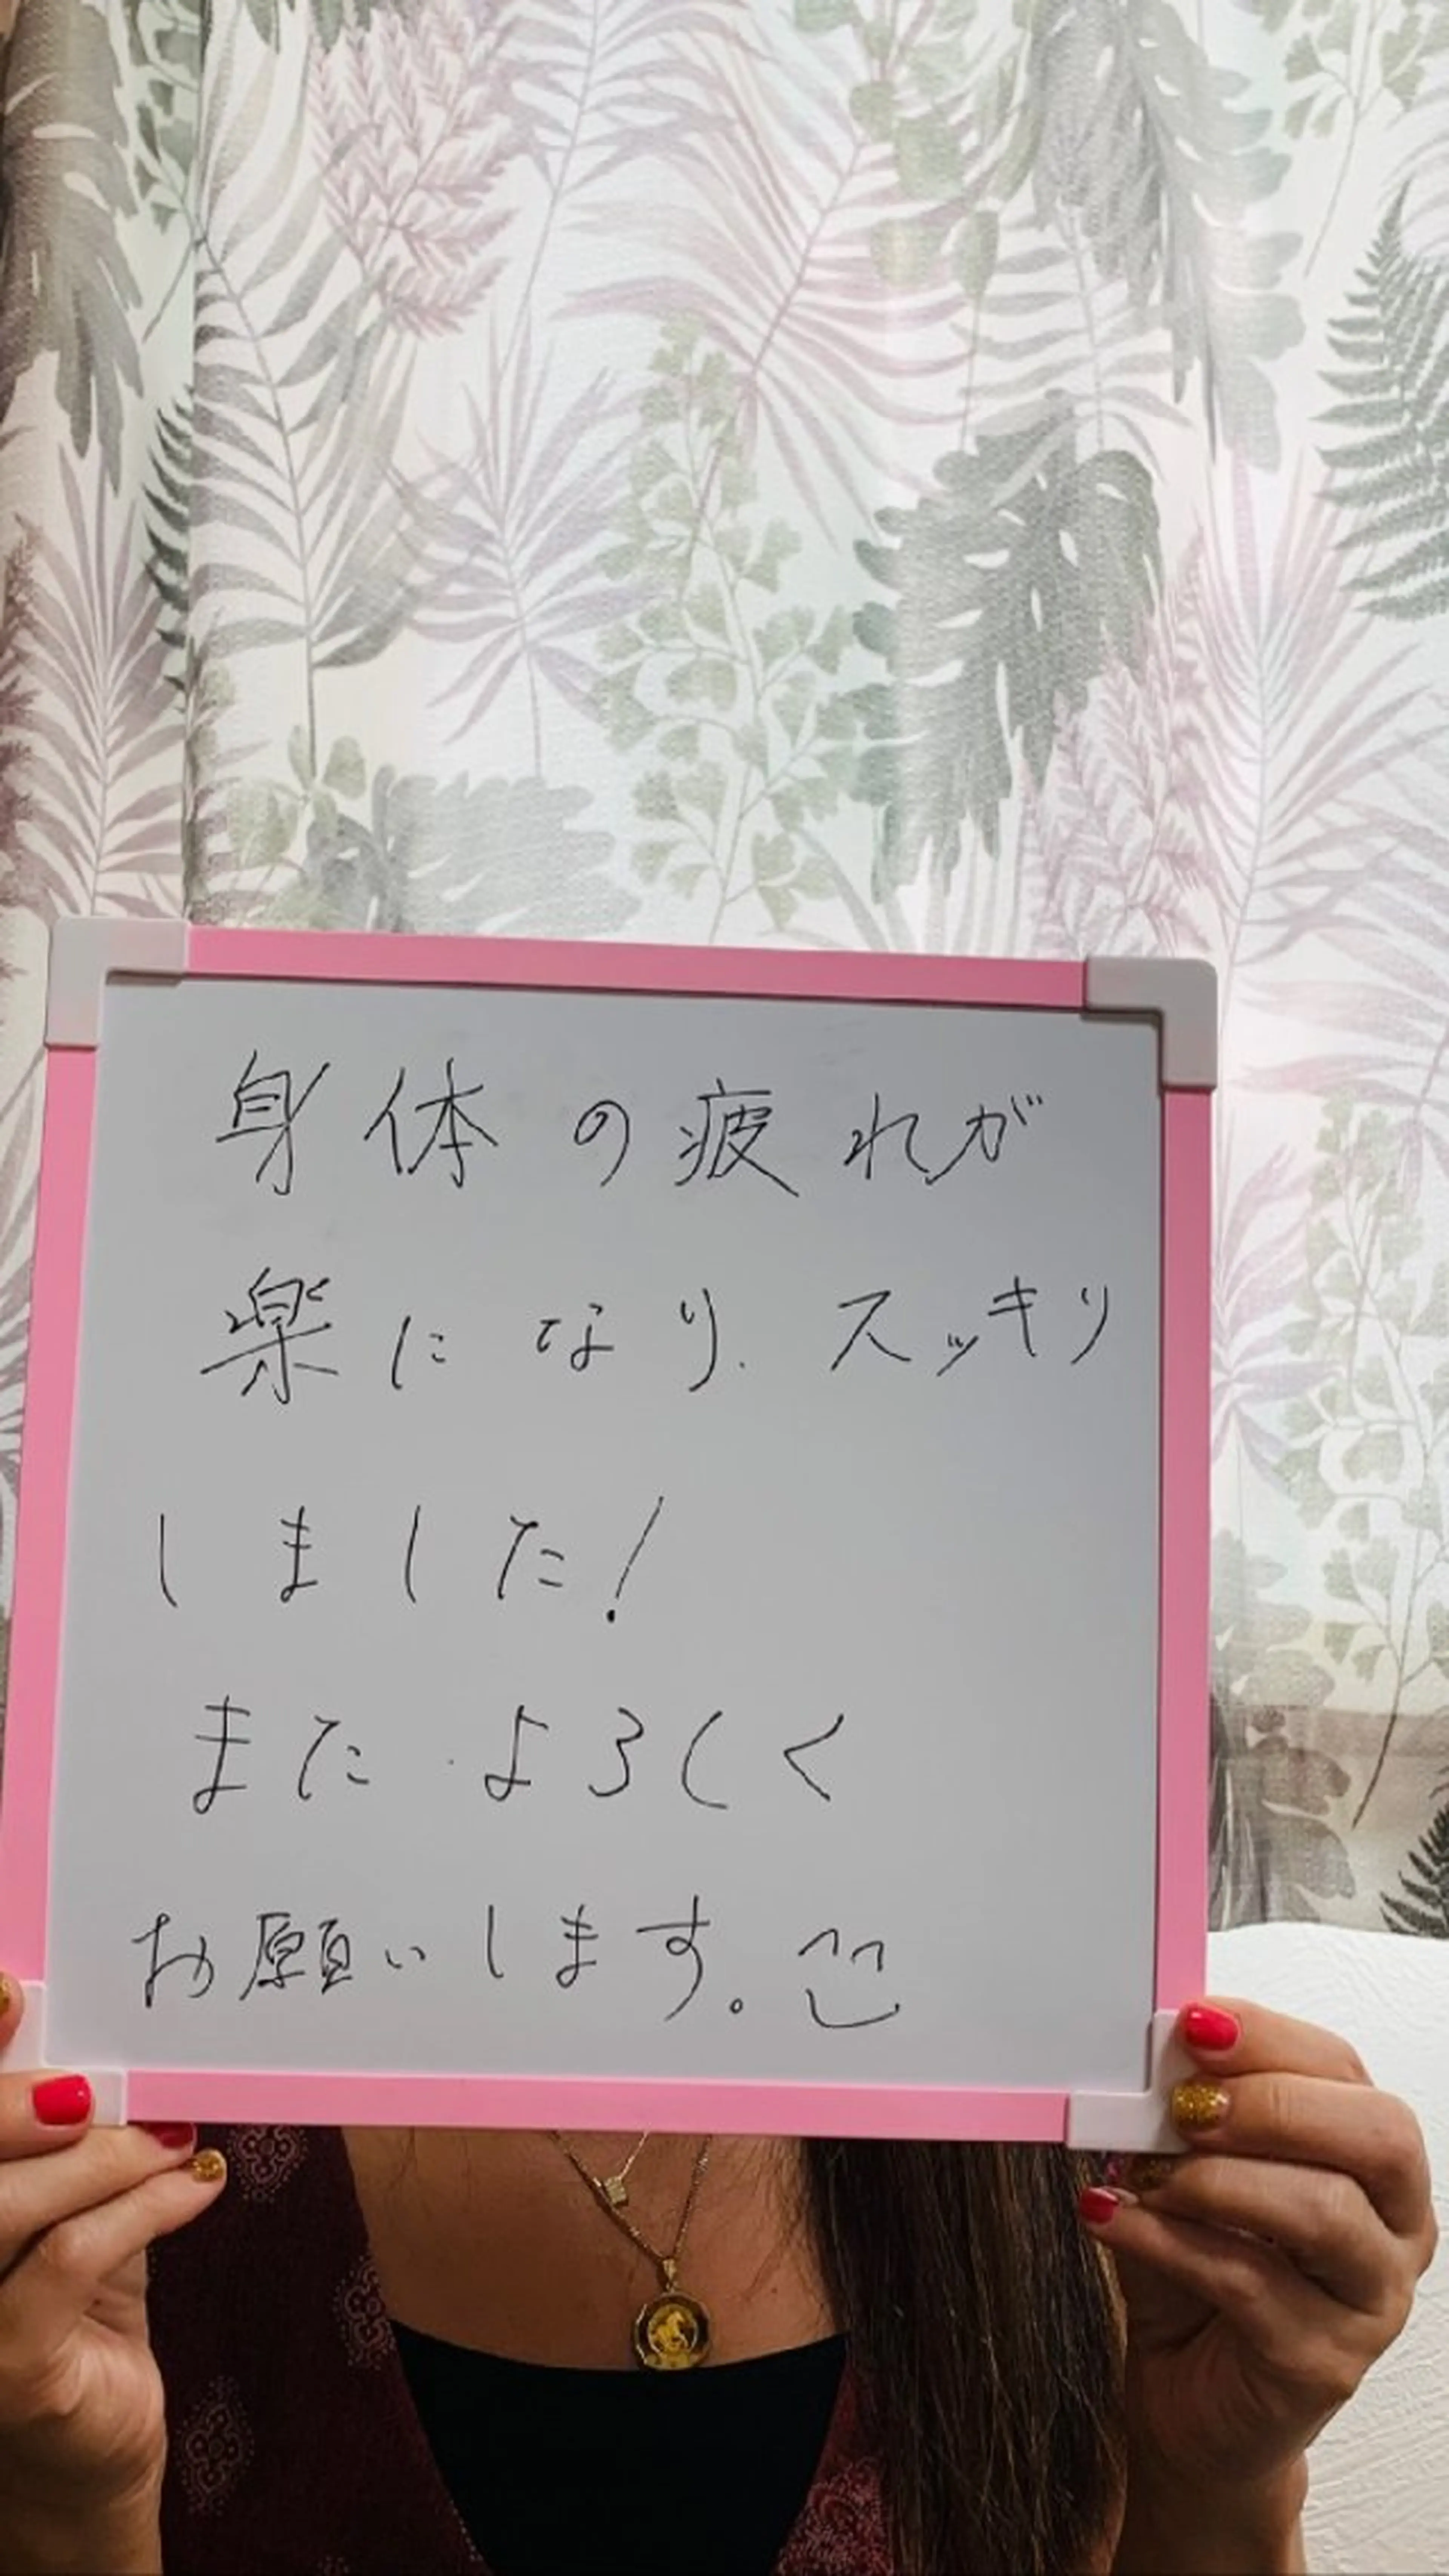 身体の疲れが
楽になり、スッキリ
しました!
また よろしく
お願いします。